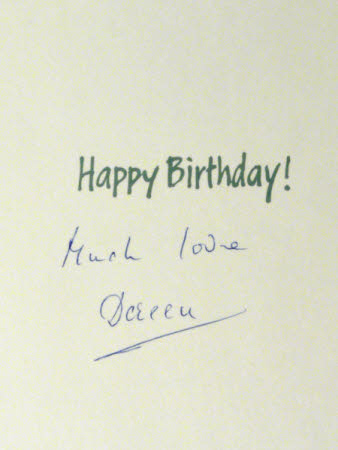 Happy Birthday!
Much love
Doreen